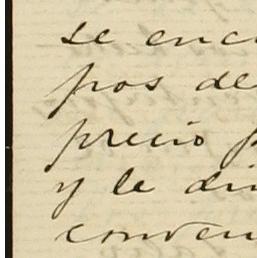 se enc
pos de
precio p
y le di
conven